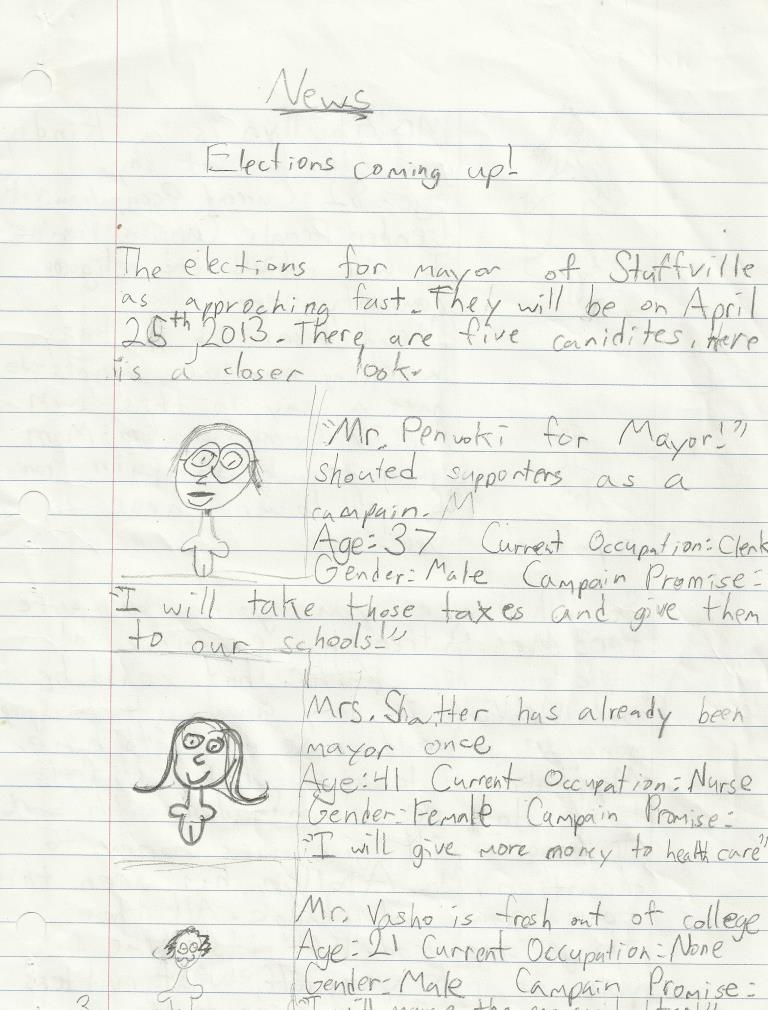 News
Elections coming up!
The elections for mayor of Stuffville
as approching fast. They will be on April
25th, 2013. There are five canidites. Here
is a closer look.
"Mr. Penvoki for Mayor!"
shouted supporters as a
campain. M
Age: 37 Current Occupation: Clerk
Gender: Male Campain Promise:
"I will take those taxes and give them
to our schools!"
Mrs. Shatter has already been
mayor once
Age: 41 Current Occupation: Nurse
Gender: Female Campain Promise:
"I will give more money to health care"
Mr. Vasho is fresh out of college
Age: 21 Current Occupation: None
Gender: Male Campain Promise:
"I will
3